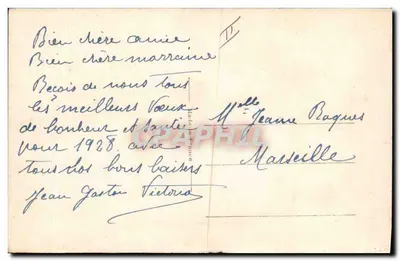 Bien chère amie
Bien chère marraine
Recois de nous tous
les meilleurs vœux
de bonheur et santé
pour 1928 avec
tous nos bons baisers
Jean Gaston Victoria
II
Melle Jeanne Roques
Marseille